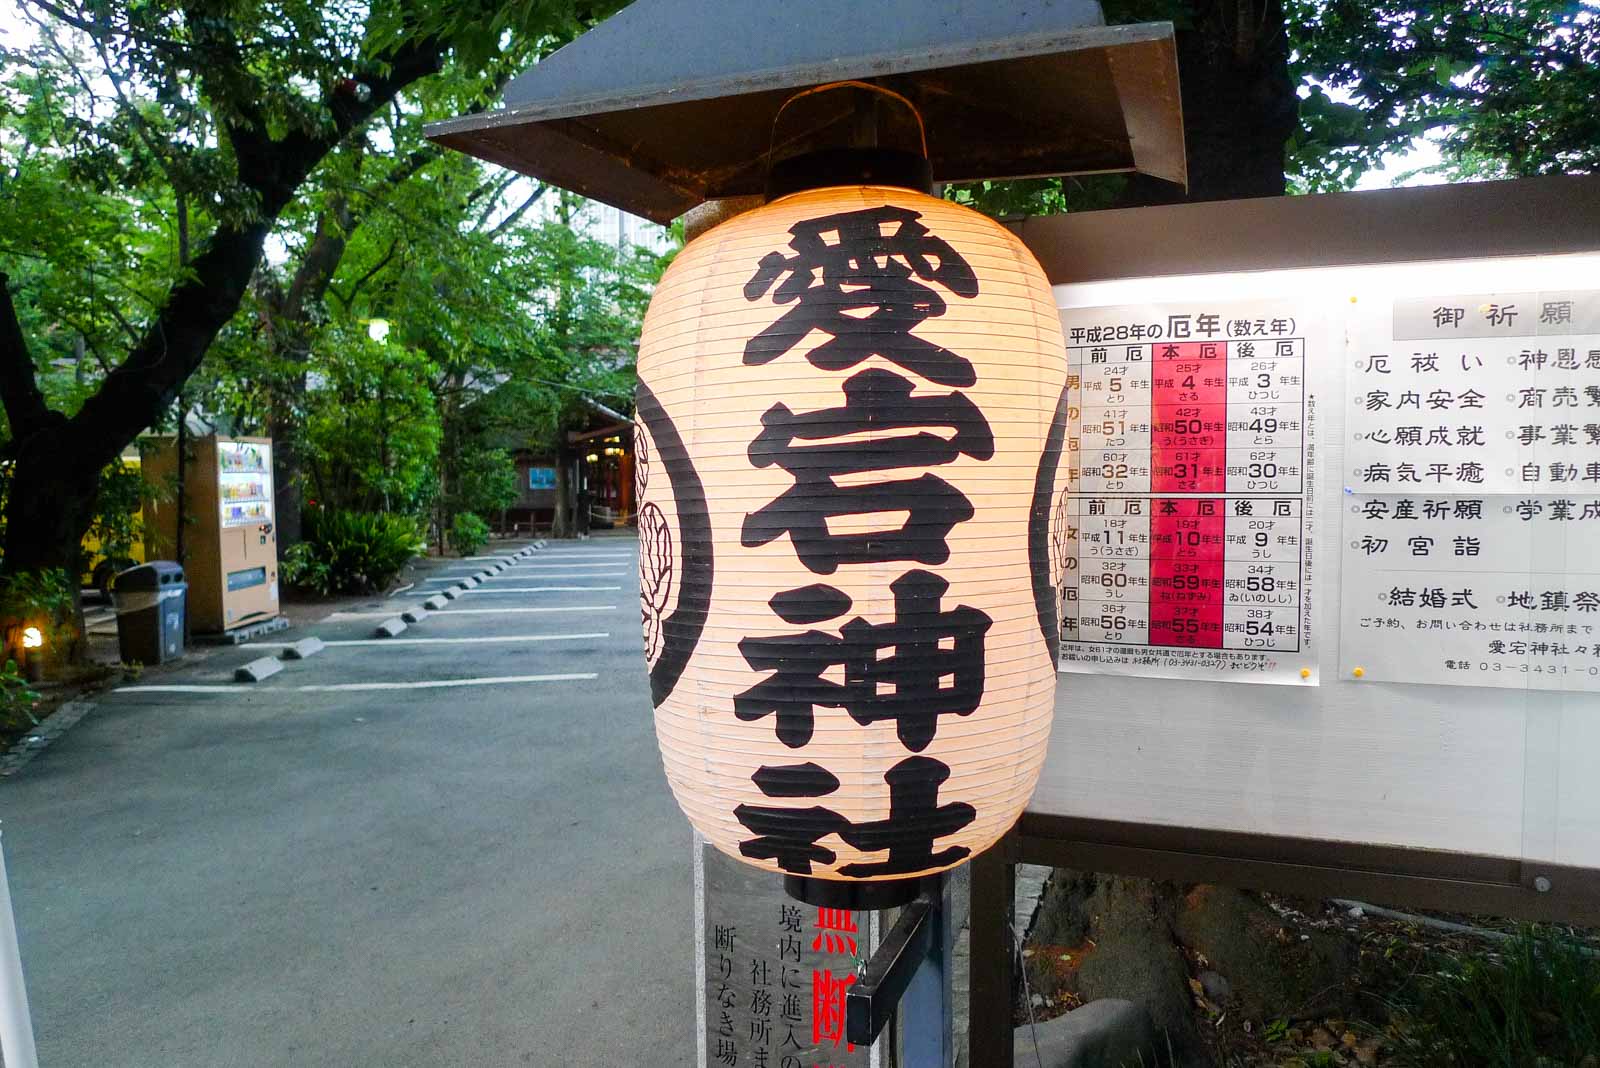 愛宕神社
平成28年の厄年(数え年)
前厄 本厄 後厄
男の厄年
24才 25才 26才
平成5年生 平成4年生 平成3年生
とり さる ひつじ
41才 42才 43才
昭和51年生 昭和50年生 昭和49年生
たつ う(うさぎ) とら
60才 61才 62才
昭和32年生 昭和31年生 昭和30年生
とり さる ひつじ
前厄 本厄 後厄
女の厄年
18才 19才 20才
平成11年生 平成10年生 平成9年生
う(うさぎ) とら うし
32才 33才 34才
昭和60年生 昭和59年生 昭和58年生
うし ね(ねずみ) ゐ(いのしし)
36才 37才 38才
昭和56年生 昭和55年生 昭和54年生
とり さる ひつじ
★数え年とは、満年齢に誕生日前には二才、誕生日後には一才を加えた年です。
近年は、女61才の還暦も男女共通で厄年とする場合もあります。
お祓いの申し込みは 社務所(03-3431-0327)まで
御祈願
○厄祓い ○神恩感
○家内安全 ○商売繁
○心願成就 ○事業繁
○病気平癒 ○自動車
○安産祈願 ○学業成
○初宮詣
○結婚式 ○地鎮祭
ご予約、お問い合わせは社務所まで
愛宕神社々務
電話 03-3431-0
無断
境内に進入の
社務所ま
断りなき場